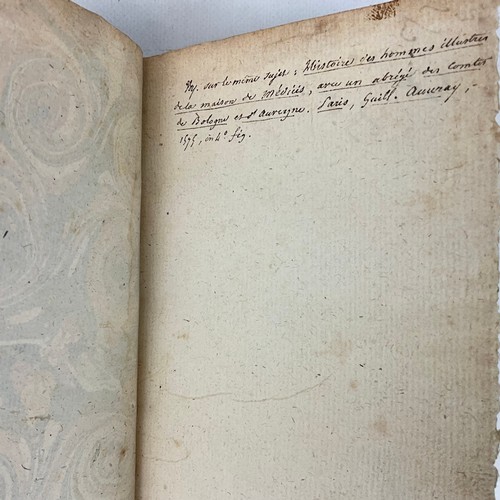 Vy. sur le même sujet : Histoire des hommes illustres
de la maison de Médicis, avec un abrégé des comtes
de Bologne et d'Auvergne. Paris, Guill. Auvray,
1575, in 4° fig.